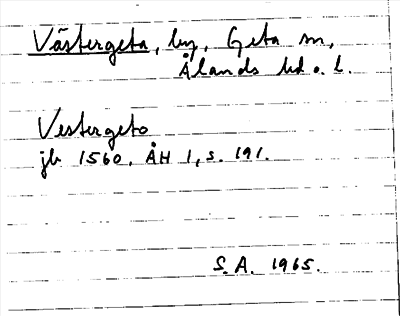 Västergeta, by, Geta sn,
Ålands hd o. l.
Vestergeto
jb 1560. ÅH 1, s. 191.
S.A. 1965.